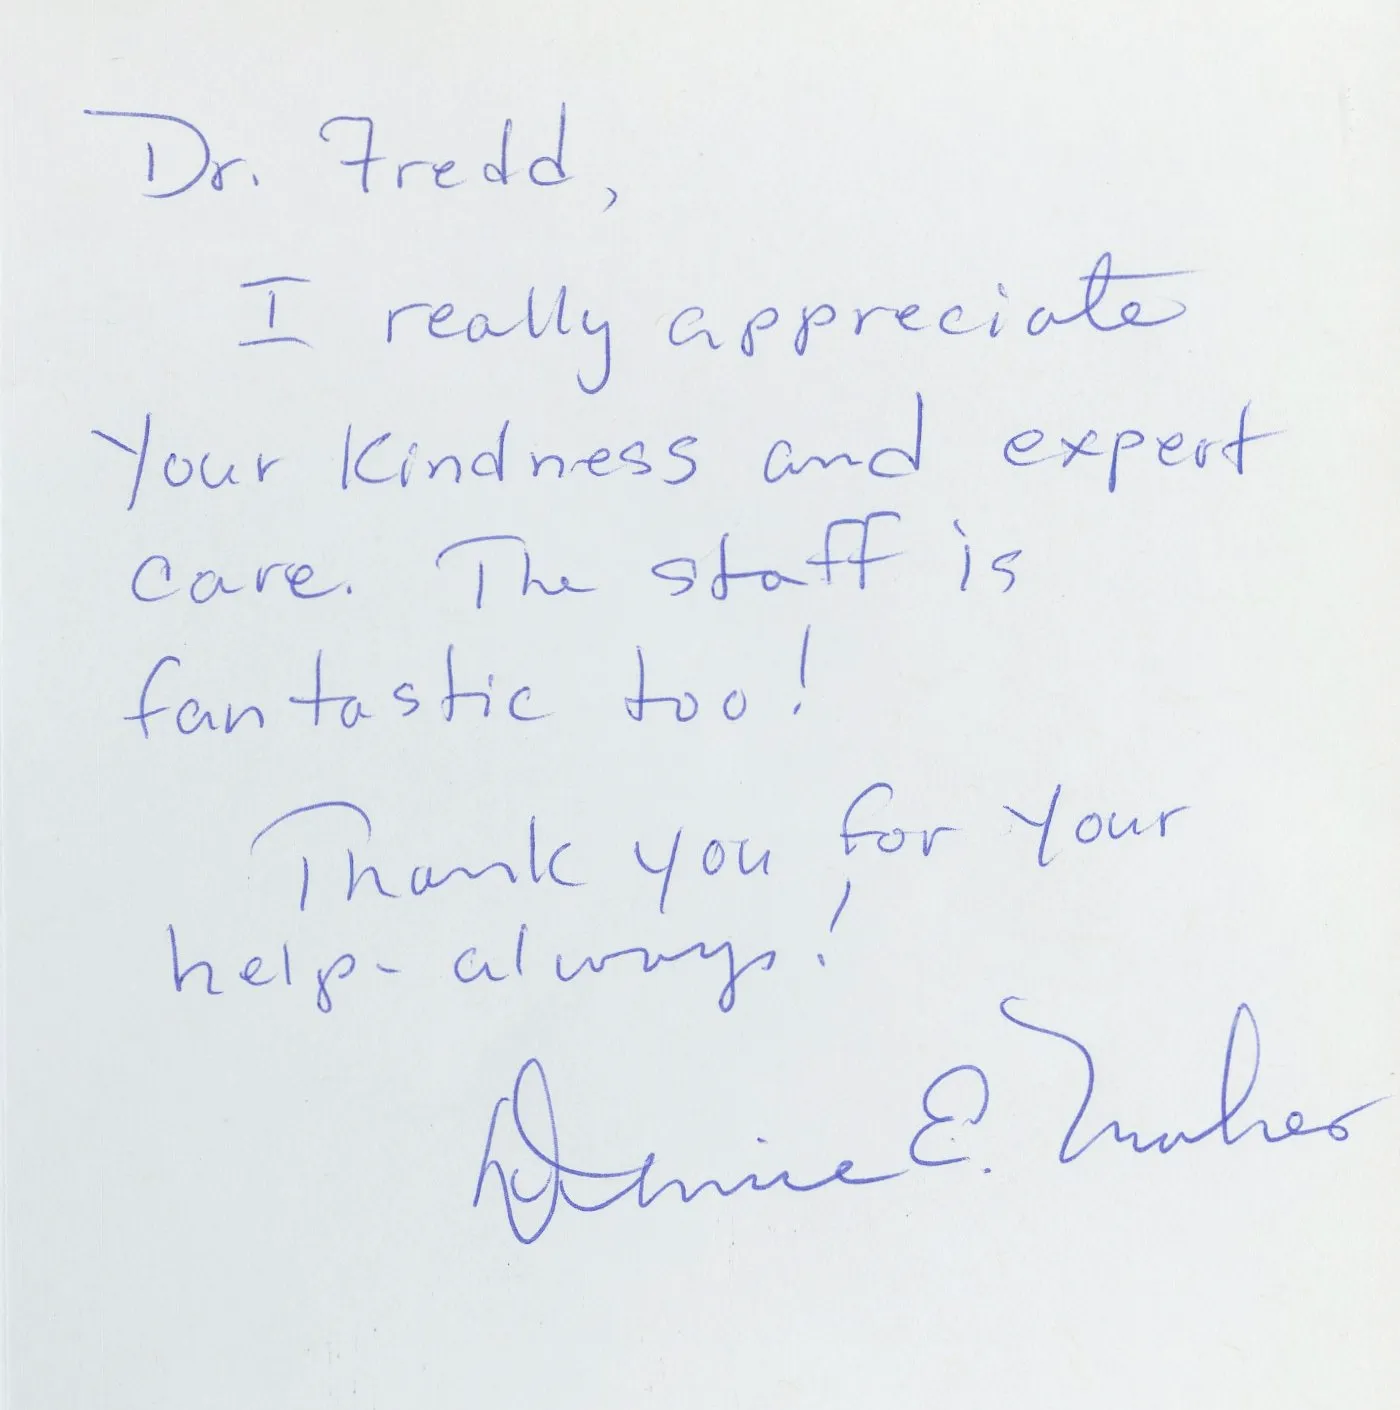 Dr. Fredd,
I really appreciate
your kindness and expert
care. The staff is
fantastic too!
Thank you for your
help- always!
Denise E. Maher